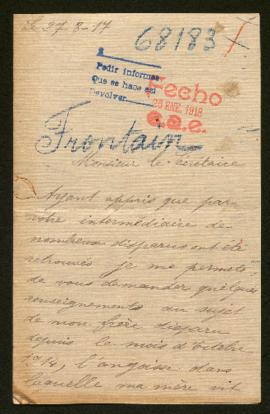 Le 27-8-17
68183
Pedir informes
Que se haga así
Devolver
Fecho
28 ENE. 1918
Frontain
Monsieur le Secrétaire
Ayant appris que par
votre intermédiaire de
nombreux disparus ont été
retrouvés je me permets
de vous demander quelques
renseignements au sujet
de mon frère disparu
depuis le mois d'Octobre
1914, l'angoisse dans
laquelle ma mère vit